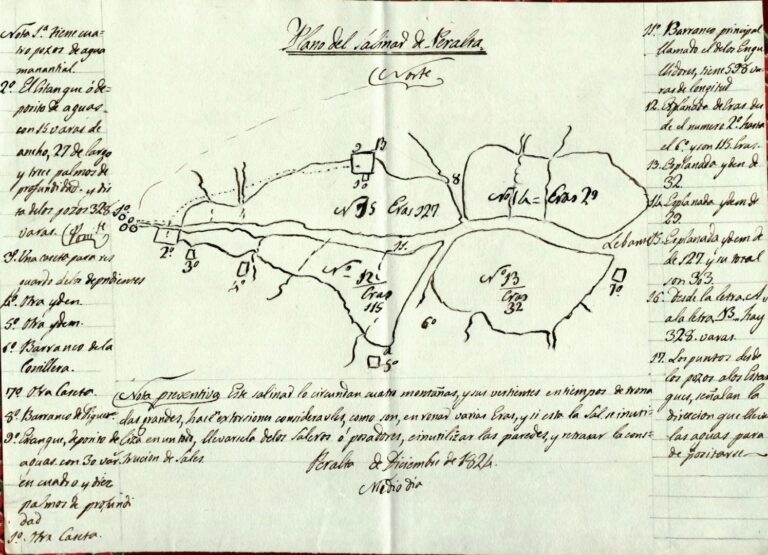 Plano del Salinas de Peralta.
Norte
Nota 1ª tiene cua-
tro pozos de agua
manantial.
2º El Estanque ó de-
posito de aguas
con 15 varas de
ancho, 27 de largo
y trece palmos de
profundidad y dis-
ta de los pozos 328
varas.
3º Una caseta para res
guardo de los dependientes
4º Otra ydem.
5º Otra ydem.
6º Barranco de la
7º Otra Caseta.
8º Barranco de
9º Estanque, deposito de
aguas con 30 var
en cuadro y diez
palmos de profundi
dad
1º Otra Caseta.
9 B
1º
8
Nº 15 Eras 127
Nº 14 = Eras 29
1º
2º
3º
4º
11
Nº 12
Eras
115
Nº 13
Eras
32
6º
7º
a
5º
Nota preventiva Este salinas lo circundan cuatro montañas, y sus vertientes en tiempos de trona
das grandes, hace extorsiones considerables, como son, en ronar varias Eras, y si esta la Sal se inuti-
liza en un todo, llevarselo de los Saleros ó posadores, é inutilizar las paredes, y retrasar la cons-
trucion de Sales.
Peralta de Diciembre de 1824.
Medio dia
11. Barranco principal
llamado el de los Engu
llidores, tiene 598 va
ras de longitud
12. Esplanada de Eras des
de el numero 2º hasta
el 6º y son 115 Eras.
13. Esplanada ydem de
32.
14. Esplanada ydem de
29.
15. Esplanada ydem de
de 127 y su total
son 303.
16. Desde la letra A
a la letra B hay
328 varas.
17. Los puntos desde
los pozos a los Estan
ques, señalan la
direccion que llevan
las aguas para
depositarse